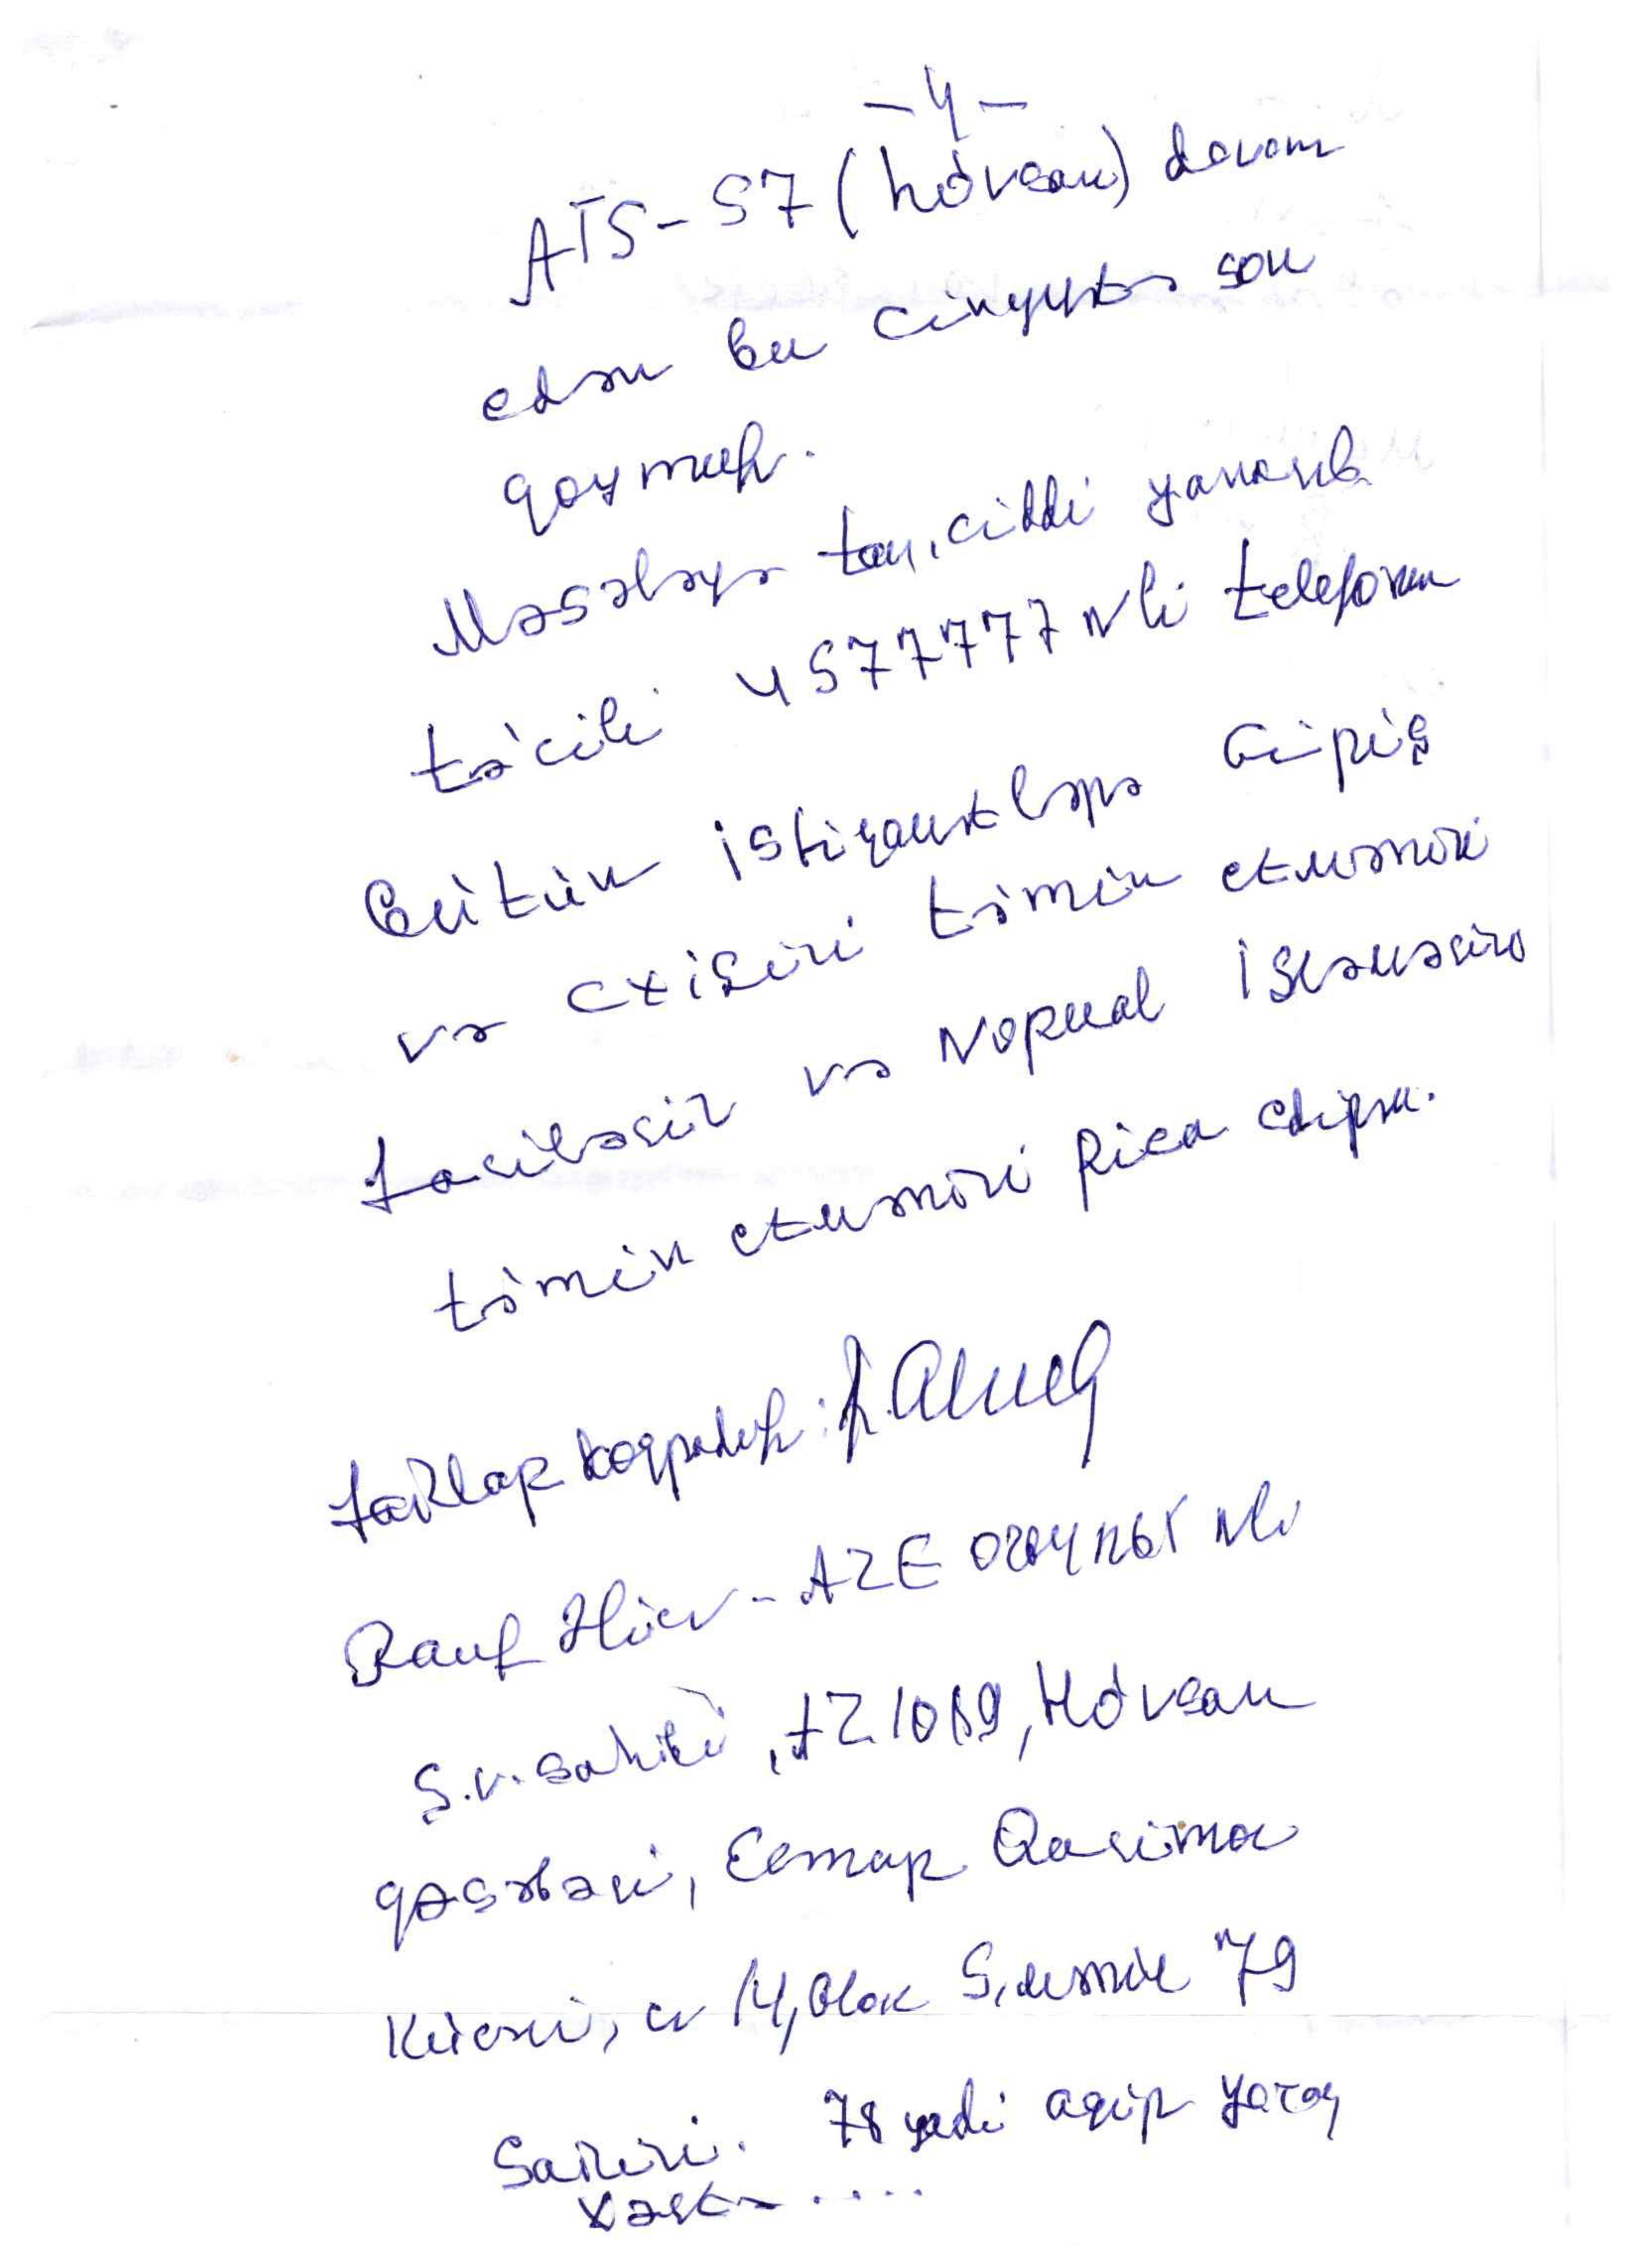 -4-
ATS-57 (Hövsan) davam
edən bu cinayətə son
qoymaq.
Məsələyə ciddi yanaşıb
təcili 4577777 Nli telefonun
bütün istiqamətlərə giriş
və çıxışını təmin etmənizi
fasiləsiz və normal işləməsini
təmin etmənizi rica edirəm.
faktlar
Rauf AZE Nli
ş.v. sahibi, AZ1089, Hövsan
qəsəbəsi, Elmar Qasımov
küçəsi, ev 14, blok 5, mənzil 79
Sakini. 78 yaşlı ağır yataq
xəstə ....